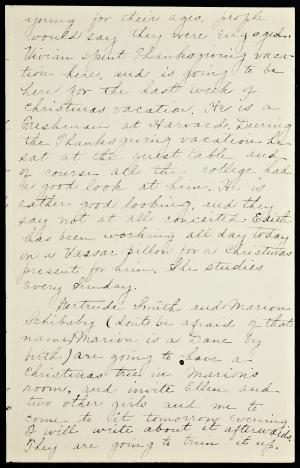 young for their ages, people
would say they were engaged.
Vivian spent Thanksgiving vaca-
tion here, and is going to be
here for the last week of
Christmas vacation. He is a
Freshman at Harvard. During
the Thanksgiving vacation he
sat at the guest table, and
of course all the college had
a good look at him. He is
rather good looking, and they
say not at all conceited. Edith
has been working all day today
on a Vassar pillow for a Christmas
present for him. She studies
every Sunday.
Gertrude Smith and Marion
Schibsby (don't be afraid of that
name, Marion is a Dane by
birth) are going to have a
Christmas tree in Marion's
room, and invite Ellen and
two other girls and me to
come to it tomorrow evening.
I will write about it afterwards.
They are going to trim it up.